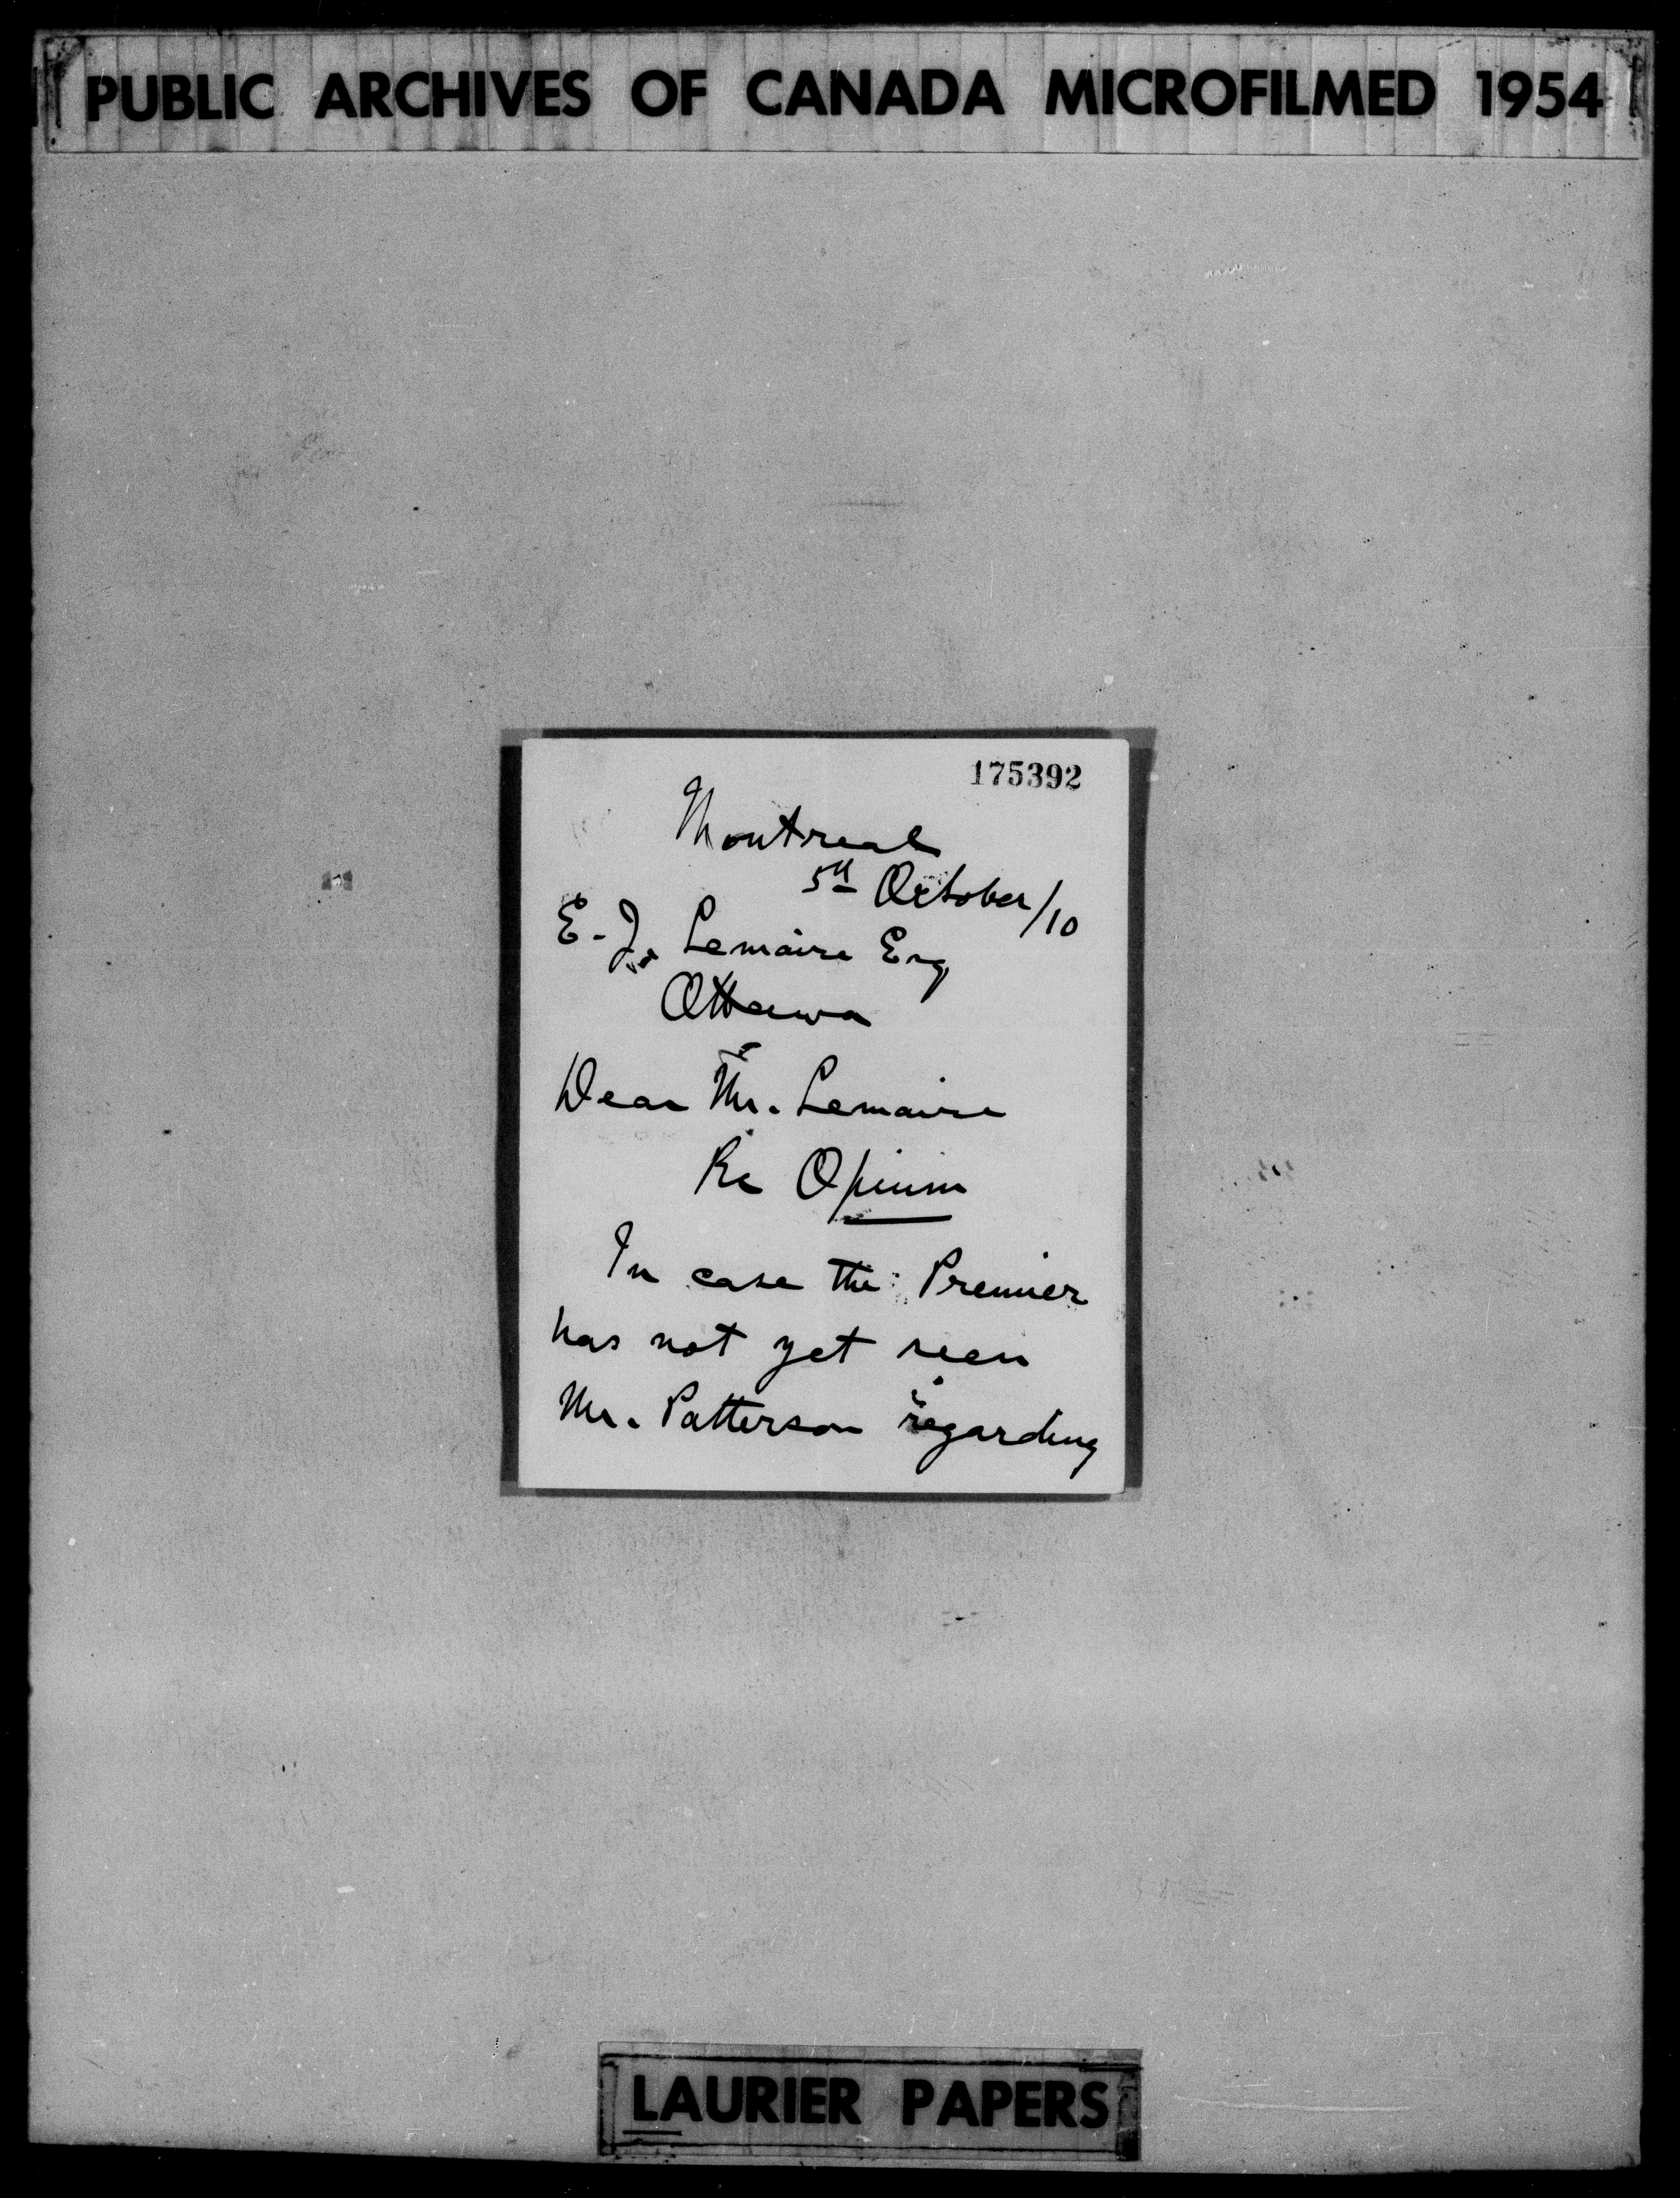 PUBLIC ARCHIVES OF CANADA MICROFILMED 1954
175392
Montreal
5th October/10
E. J. Lemaire Esq
Ottawa
Dear Mr. Lemaire
Re Opium
In case the Premier
has not yet seen
Mr. Patterson regarding
LAURIER PAPERS